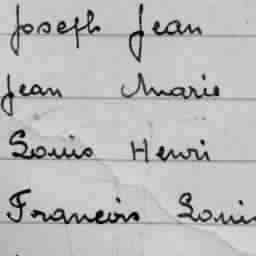 Joseph Jean
Jean Marie
Louis Henri
Francois Louis